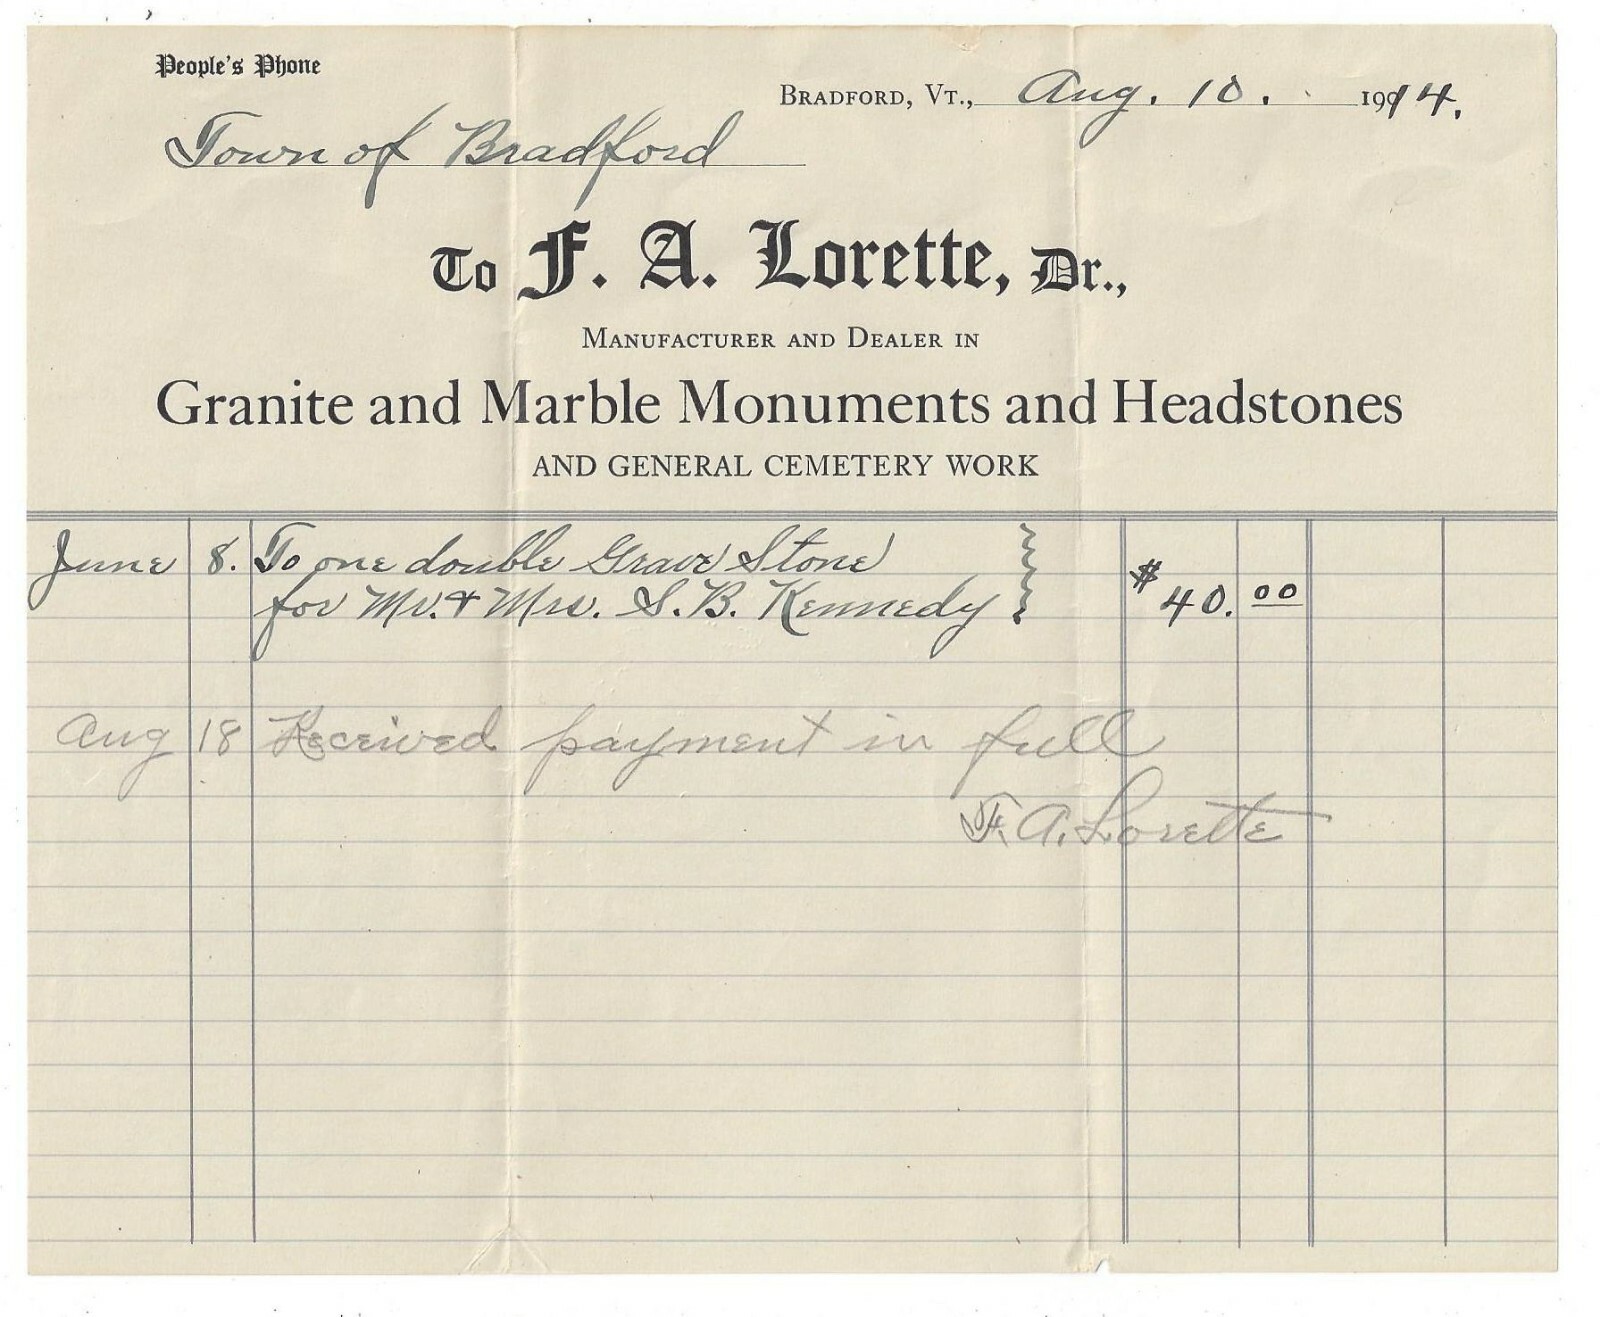 People's Phone
Bradford, Vt., Aug. 10. 1914.
Town of Bradford
To F. A. Lorette, Dr.,
Manufacturer and Dealer in
Granite and Marble Monuments and Headstones
AND GENERAL CEMETERY WORK
June 8. To one double Grave Stone
for Mr. & Mrs. S. B. Kennedy $40.00
Aug 18 Received payment in full
F. A. Lorette